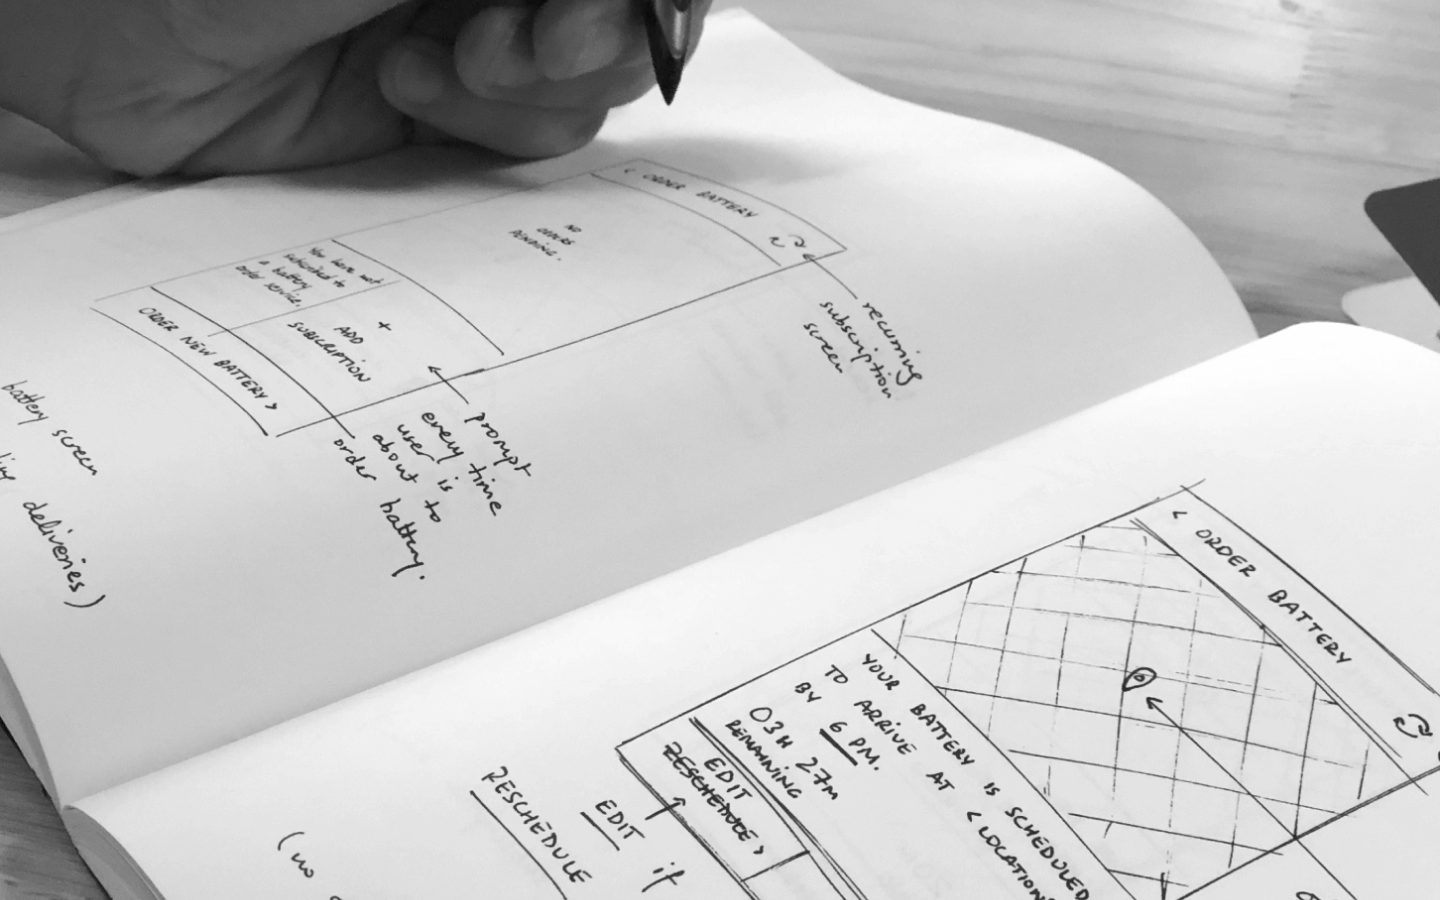 < ORDER BATTERY
NO
ORDERS
PENDING.
You have not
subscribed to
a battery
order service.
+
ADD
SUBSCRIPTION
ORDER NEW BATTERY >
recurring
subscription
screen
prompt
every time
user is
about to
order battery.
battery screen
deliveries)
< ORDER BATTERY
YOUR BATTERY IS SCHEDULED
TO ARRIVE AT <LOCATION
BY 6 PM.
03H 27m
REMAINING
EDIT
RESCHEDULE >
RESCHEDULE
EDIT if